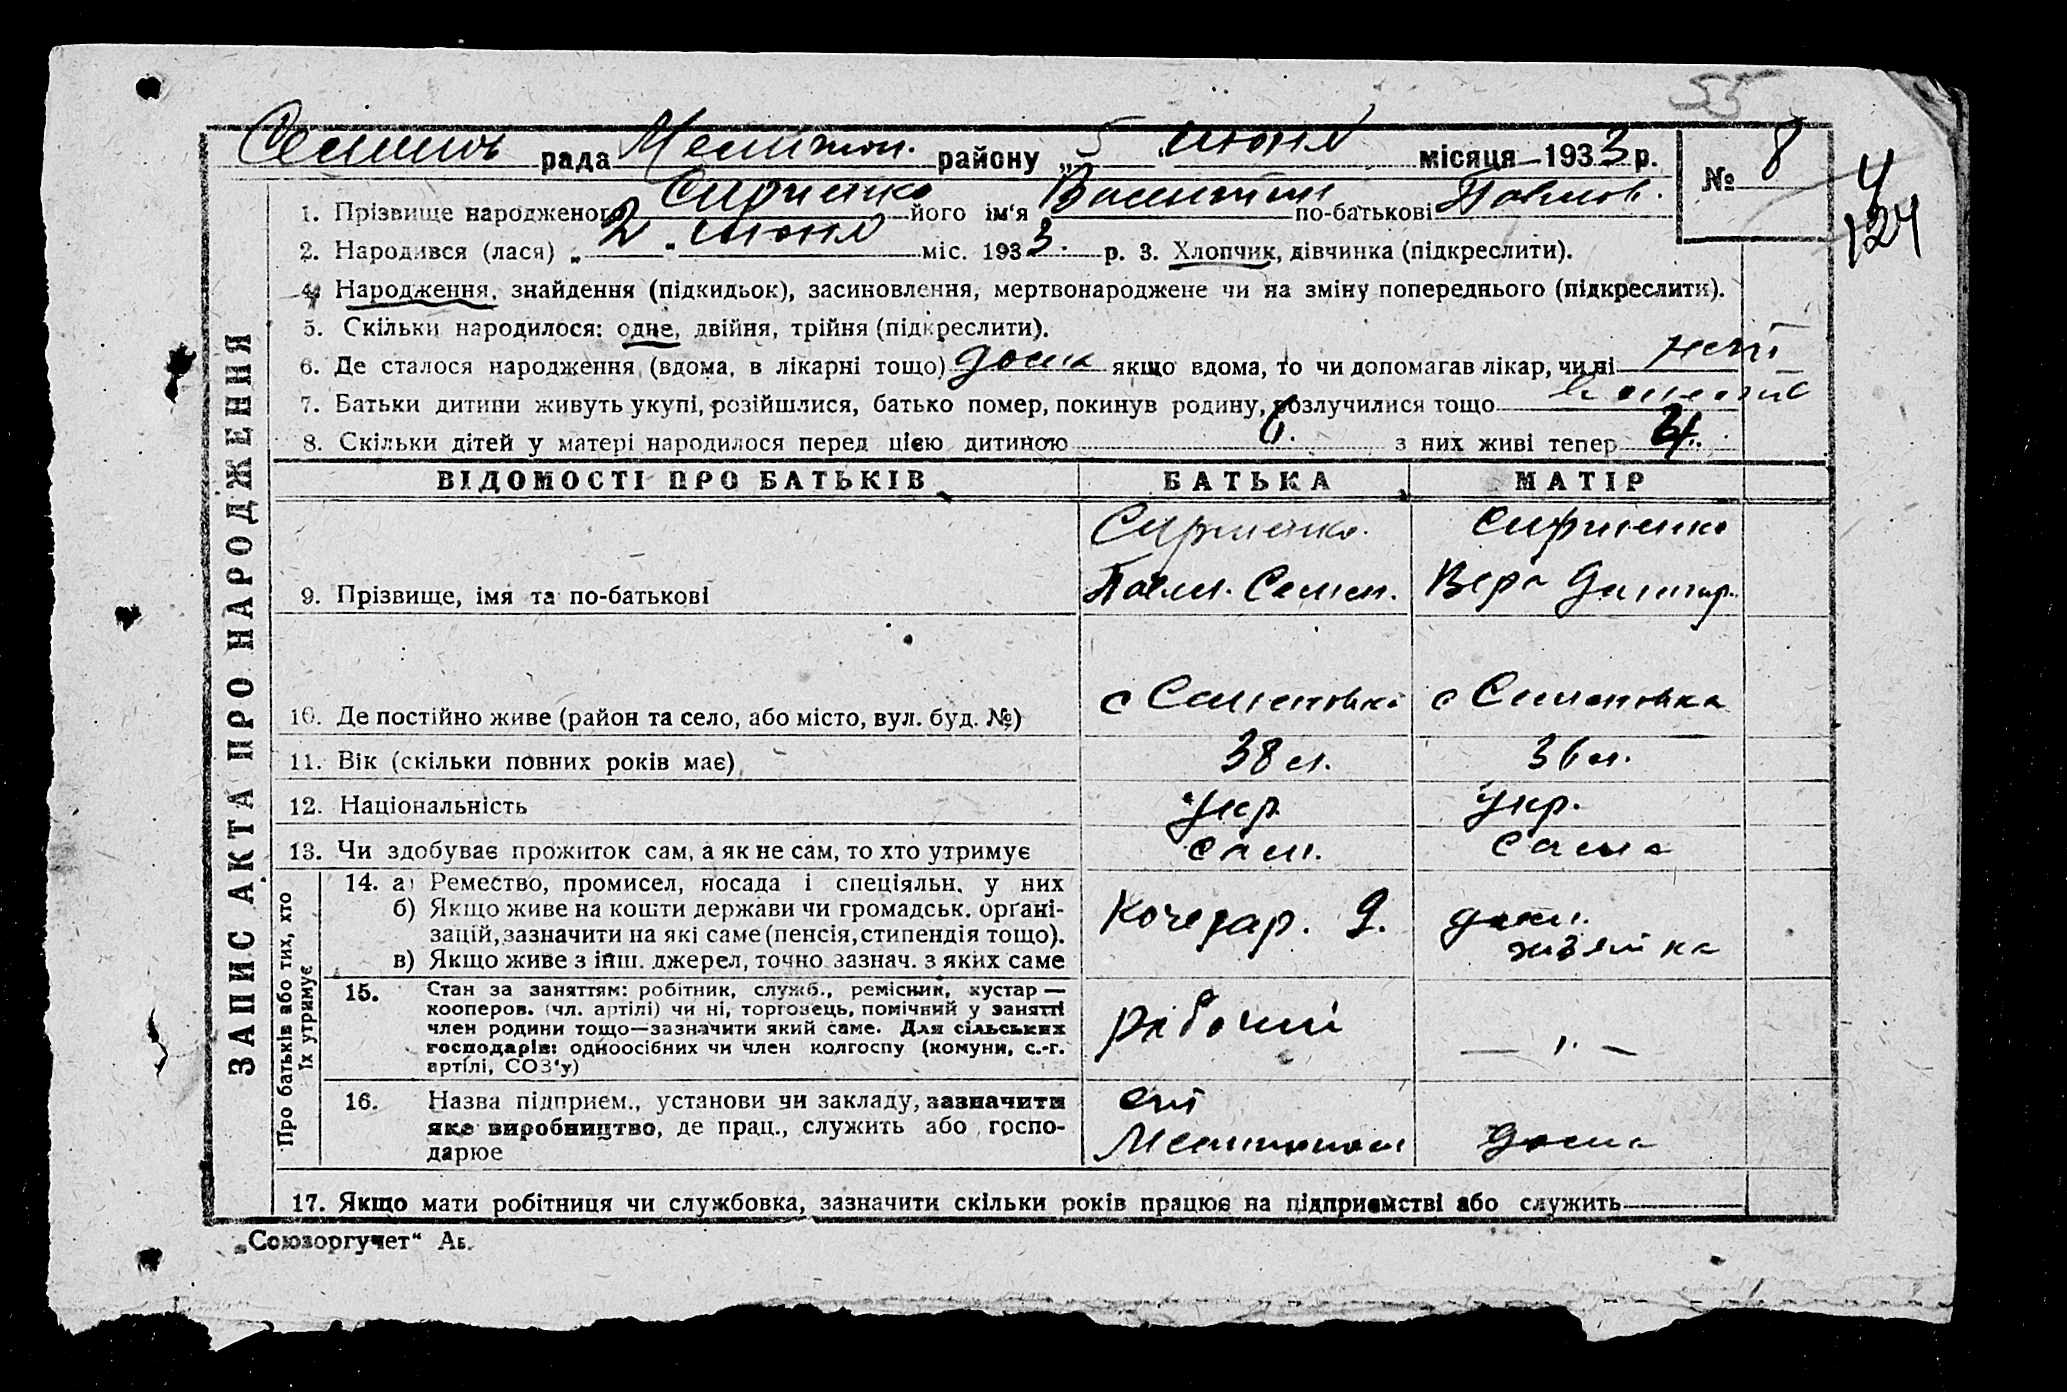 55
Семенов рада Мелитоп. району „5 июня місяця 1933 р.
№ 8
4
124
1. Прізвище народженого його ім'я по-батькові Павлов.
2. Народився (лася) „2" июня міс. 1933 р. 3. Хлопчик, дівчинка (підкреслити).
4. Народження, знайдення (підкидьок), засиновлення, мертвонароджене чи на зміну попереднього (підкреслити).
5. Скільки народилося: одне, двійня, трійня (підкреслити).
6. Де сталося народження (вдома, в лікарні тощо) дома якщо вдома, то чи допомагав лікар, чи ні нет
7. Батьки дитини живуть укупі, розійшлися, батько помер, покинув родину, розлучилися тощо
8. Скільки дітей у матері народилося перед цією дитиною 6. з них живі тепер 4.
ВІДОМОСТІ ПРО БАТЬКІВ БАТЬКА МАТІР
9. Прізвище, імя та по-батькові Павел. Семен. Вера Дмитр.
10. Де постійно живе (район та село, або місто, вул. буд. №) с Семеновка с Семеновка
11. Вік (скільки повних років має) 38 л. 36 л.
12. Національність укр укр.
13. Чи здобуває прожиток сам, а як не сам, то хто утримує сам. сама
14. а) Ремество, промисел, посада і спеціяльн. у них
б) Якщо живе на кошти держави чи громадськ. орґані-
зацій, зазначити на які саме (пенсія, стипендія тощо).
в) Якщо живе з інш. джерел, точно зазнач. з яких саме
Кочегар. дом.
хазяйка
15. Стан за заняттям: робітник, служб., ремісник, кустар —
кооперов. (чл. артілі) чи ні, торговець, помічний у занятті
член родини тощо—зазначити який саме. Для сільських
господарів: одноосібних чи член колгоспу (комуни, с.-г.
артілі, СОЗ'у)
рабочий — „ —
16. Назва підприєм., установи чи закладу, зазначити
яке виробництво, де прац., служить або госпо-
дарюе
ст
Мелитополь дома
17. Якщо мати робітниця чи службовка, зазначити скільки років працює на підприємстві або служить
ЗАПИС АКТА ПРО НАРОДЖЕННЯ
Про батьків або тих, хто
їх утримує
„Союзоргучет"